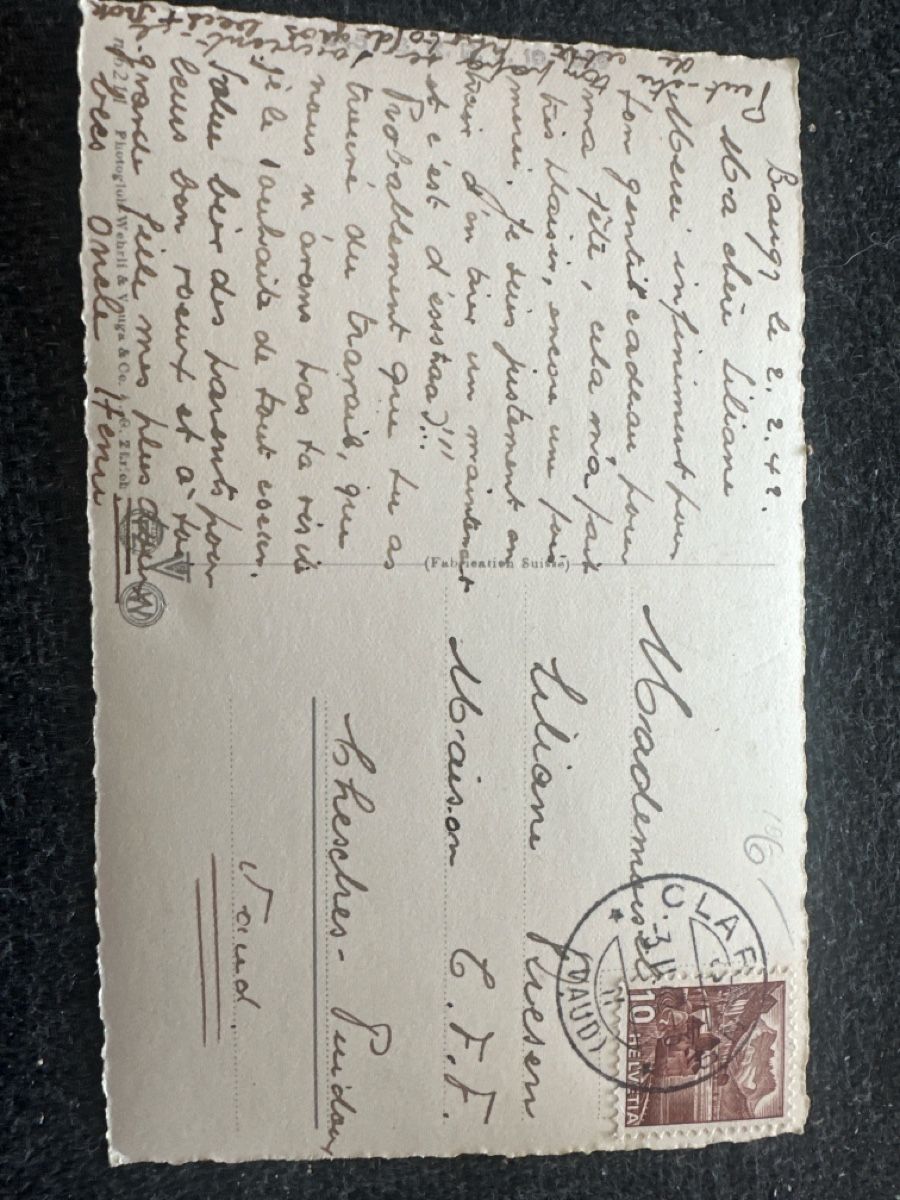 Baugy le 2.2.42.
Ma chère Liliane
Merci infiniment pour
ton gentil cadeau pour
ma fête, cela m'a fait
très plaisir, encore une fois
merci. Je suis justement en
train d'en un maintenant
et c'est d'esstraa)!!
Probablement que tu as
trouvé du travail, que
nous n'avons pas ta visite
je le souhaite de tout coeur.
Salue bien des parents pour
leurs bon voeux et à toi
grande fille mes plus
becs Oncle Henri
(Fabrication Suisse)
No 2191 Photoglob-Wehrli & Vouga & Co. A.G. Zürich
Mademoiselle
Liliane Giesen
Maison C.F.F.
Chesebres-Puidoux
Vaud.
196
CLAR
3.II
(VAUD)
10 HELVETIA
V
W